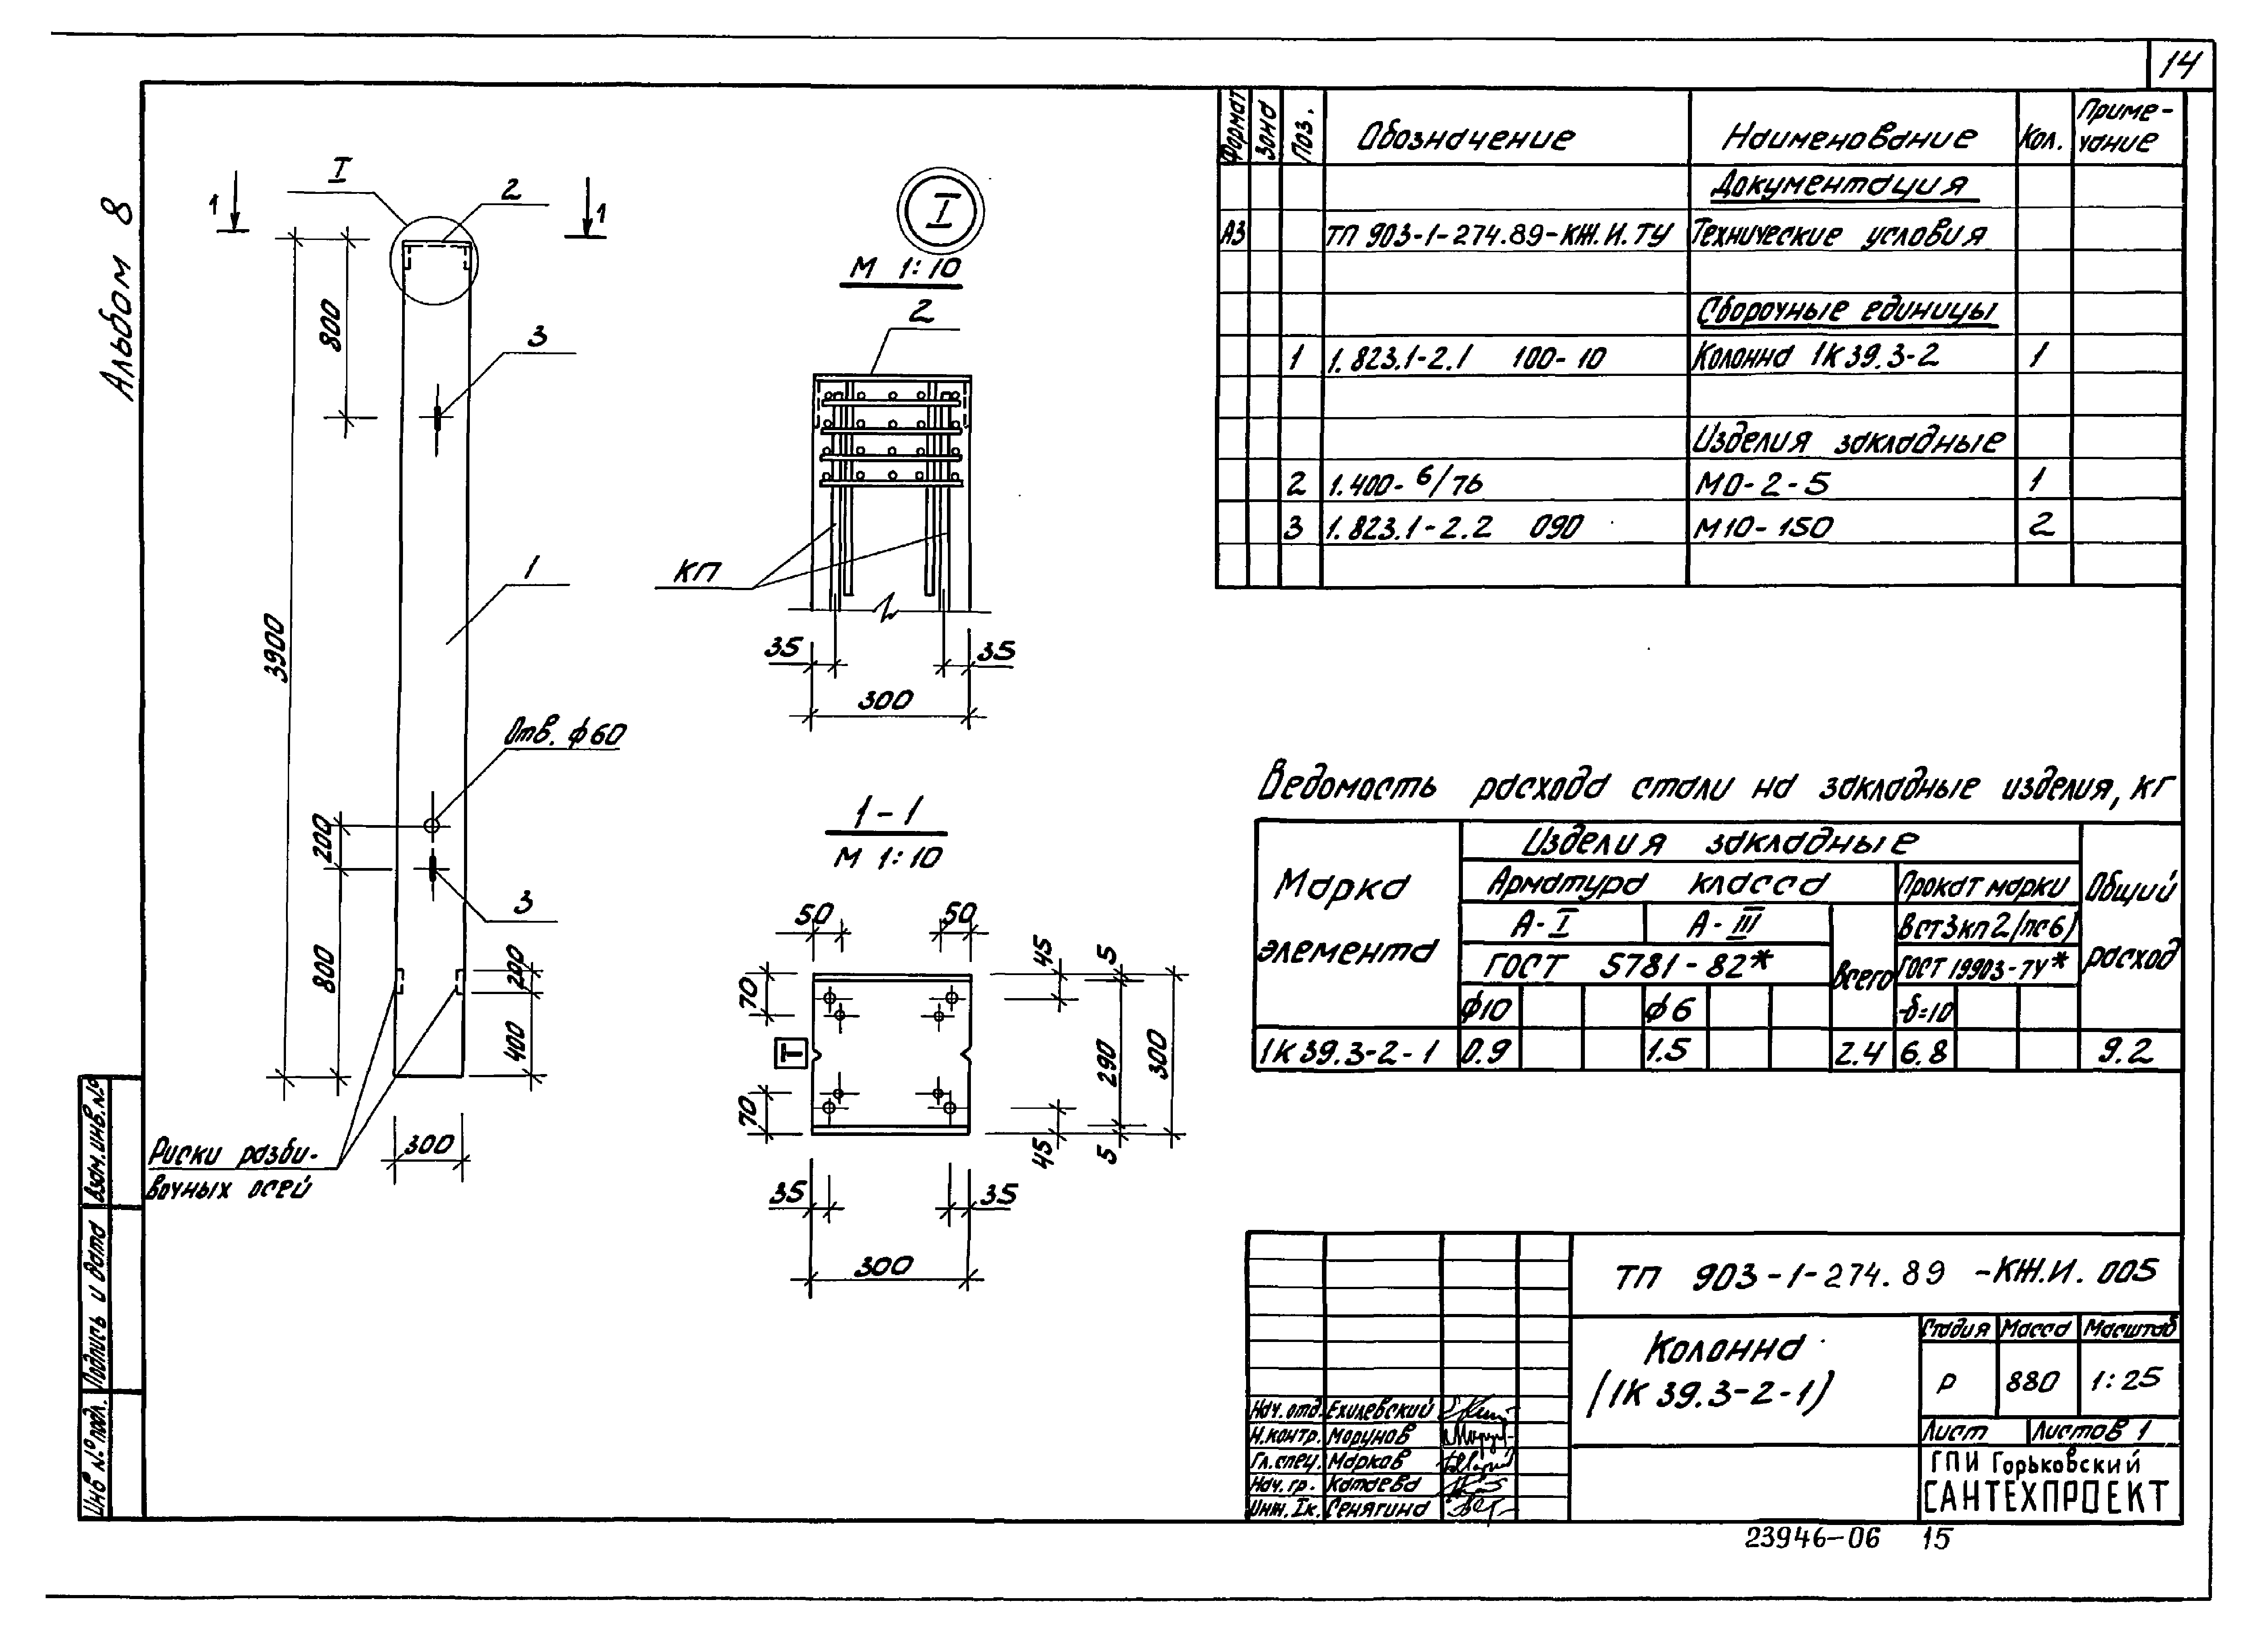 14
Альбом 8
I
2
1
1
3900
800
3
1
Отв. ф60
200
800
3
200
400
300
Риски разби-
вочных осей
I
М 1:10
2
КП
35
35
300
1-1
М 1:10
50
50
70
70
45
45
5
5
290
300
Т
35
35
300
Формат
Зона
Поз.
Обозначение
Наименование
Кол.
Приме-
чание
Документация
А3
ТП 903-1-274.89-КЖ.И.ТУ
Технические условия
Сборочные единицы
1
1.823.1-2.1 100-10
Колонна 1К39.3-2
1
Изделия закладные
2
1.400-6/76
МО-2-5
1
3
1.823.1-2.2 090
М10-150
2
Ведомость расхода стали на закладные изделия, кг
Марка
элемента
Изделия закладные
Общий
расход
Арматура класса
Прокат марки
А-I
А-III
Всего
Вст3кп2(пс6)
ГОСТ 5781-82*
ГОСТ 19903-74*
ф10
ф6
-δ=10
1К39.3-2-1
0.9
1.5
2.4
6.8
9.2
ТП 903-1-274.89 -КЖ.И. 005
Колонна
(1К 39.3-2-1)
Стадия
Масса
Масштаб
Р
880
1:25
Лист
Листов 1
ГПИ Горьковский
САНТЕХПРОЕКТ
Нач.отд. Ехилевский
Н.контр. Морунов
Гл.спец. Марков
Нач.гр. Катаева
Инж.Iк. Сенягина
Взам.инв.№
Подпись и дата
Инв №подл.
23946-06 15